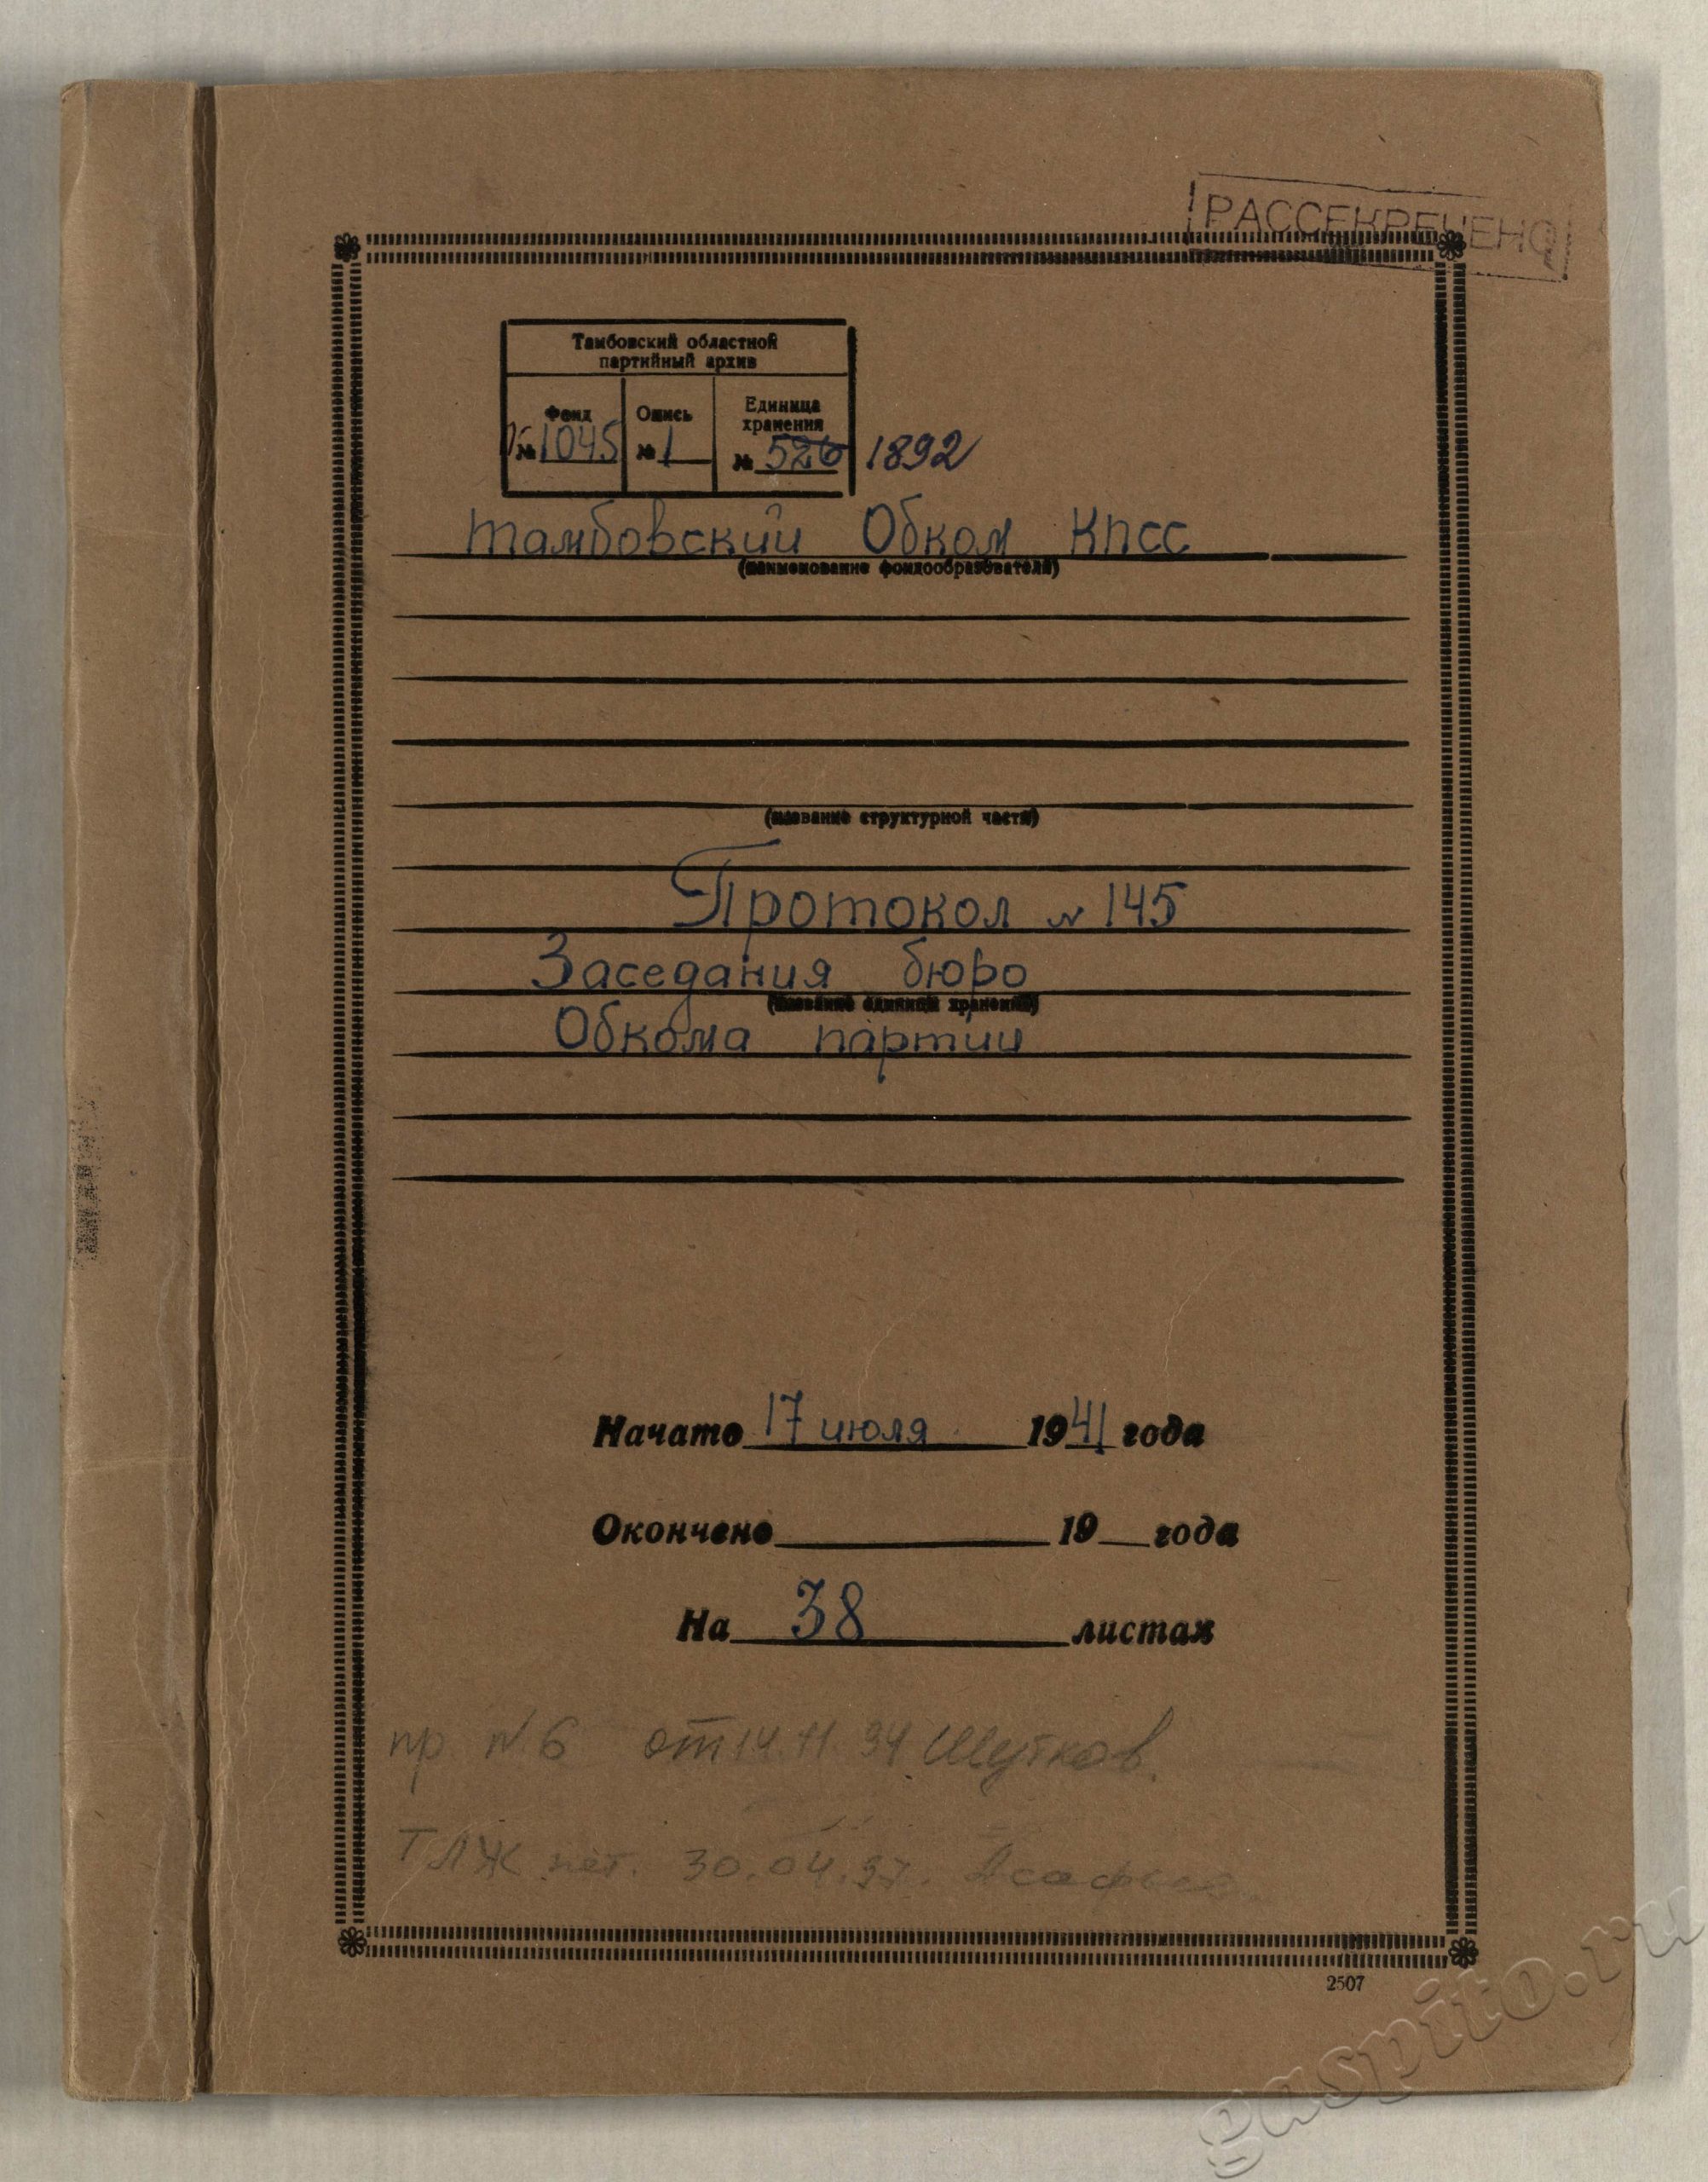 РАССЕКРЕЧЕНО
Тамбовский областной
партийный архив
Фонд Опись Единица хранения
№ 1045 № 1 № 526 1892
Тамбовский Обком КПСС
(наименование фондообразователя)
(название структурной части)
Протокол № 145
Заседания бюро
(название единицы хранения)
Обкома партии
Начато 17 июля 1941 года
Окончено 19 года
На 38 листах
пр. № 6 от 14.11.94 Шутков
ТЛЖ 30.04.97.
2507
gaspito.ru